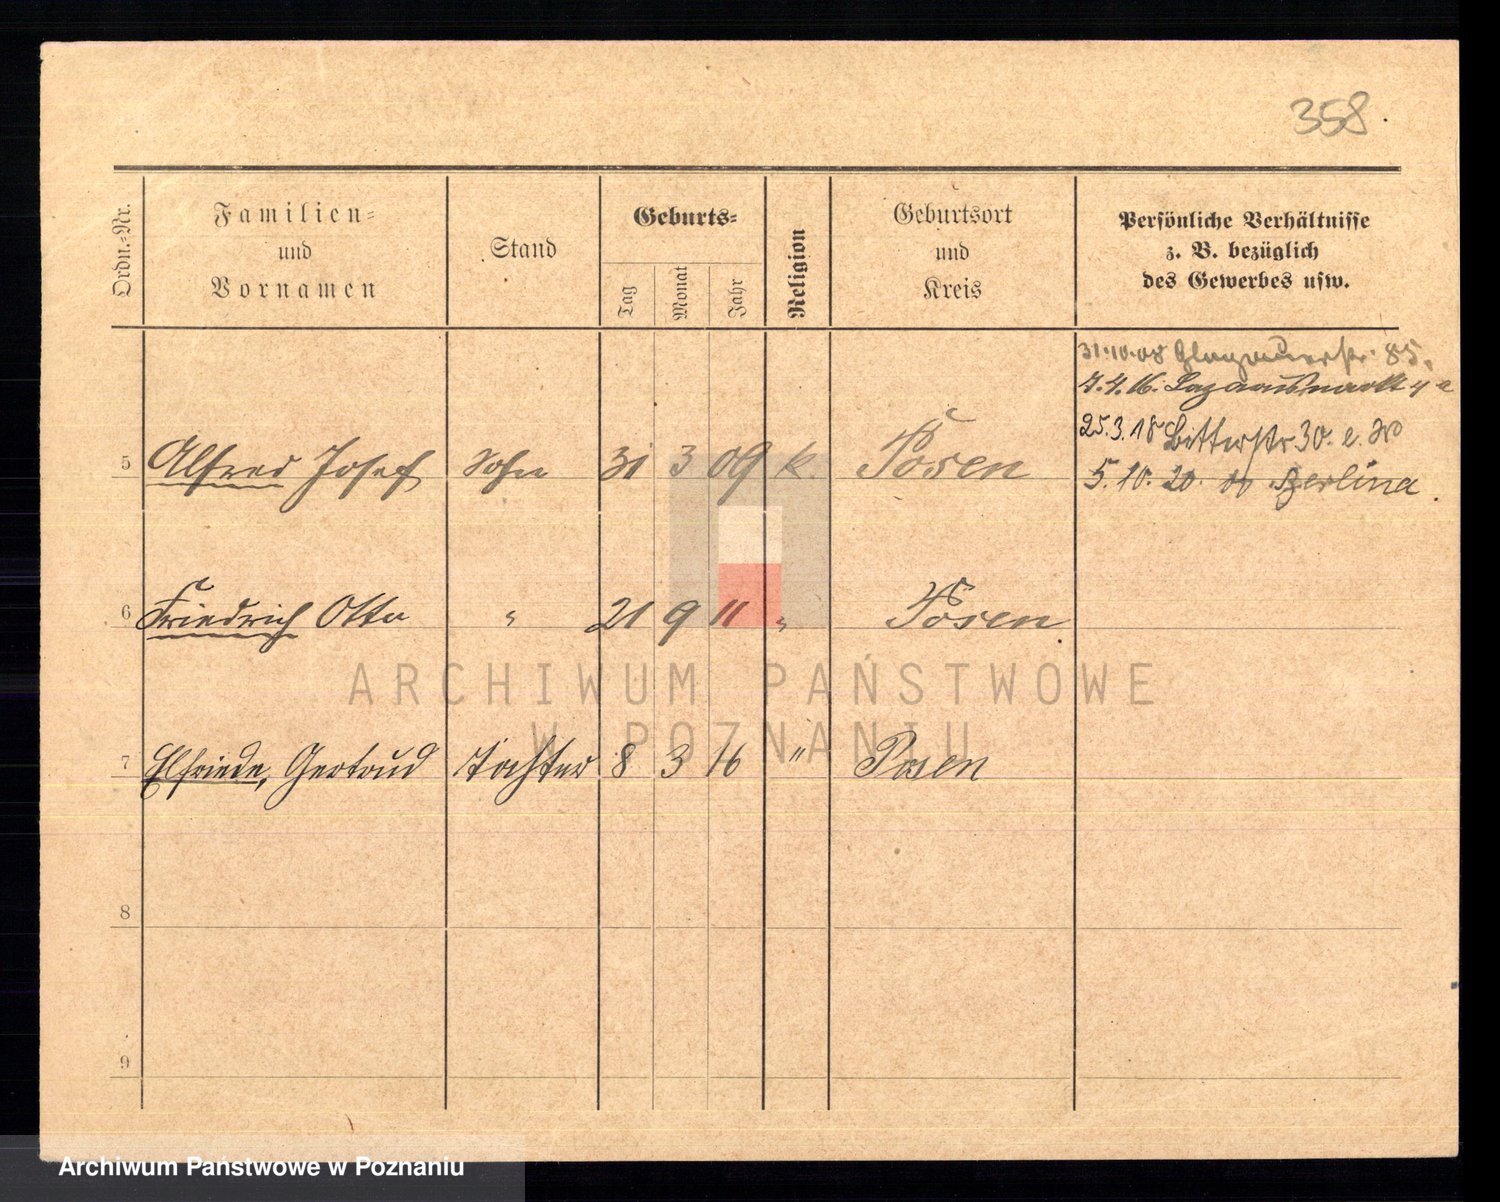 358.
Ordn.-Nr.
Familien-
und
Vornamen
Stand
Geburts-
Tag
Monat
Jahr
Religion
Geburtsort
und
Kreis
Persönliche Verhältnisse
z. B. bezüglich
des Gewerbes usw.
31.10.08 Glogauerstr. 85.
7.4.16. Lazarusmarkt 4
25.3.18 Bitterstr 30.
5 Alfred Josef Sohn 31 3 09 k. Posen
5.10.20. Berlina.
6 Friedrich Otto " 21 9 11 " Posen
ARCHIWUM PAŃSTWOWE
W POZNANIU
7 Elfriede, Gertrud Tochter 8 3 16 " Posen
8
9
Archiwum Państwowe w Poznaniu